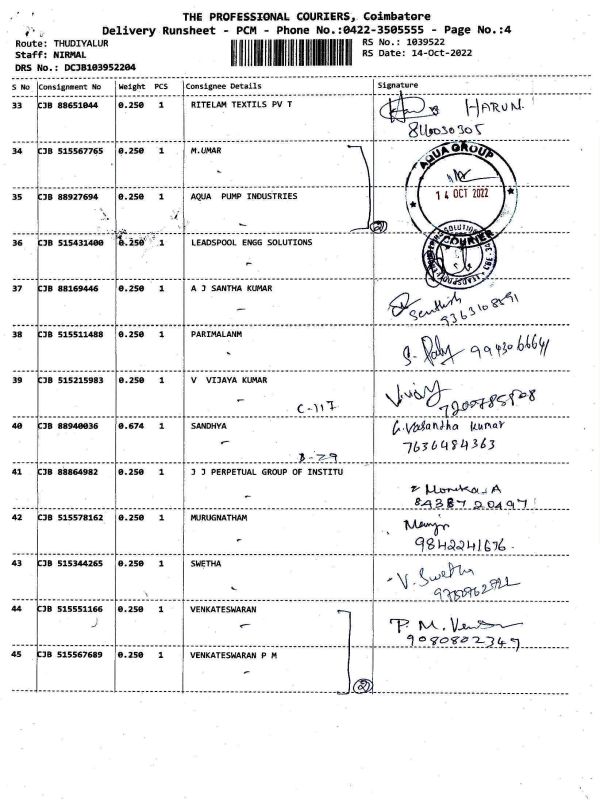 THE PROFESSIONAL COURIERS, Coimbatore
Delivery Runsheet - PCM - Phone No.:0422-3505555 - Page No.:4
Route: THUDIYALUR
RS No.: 1039522
Staff: NIRMAL
RS Date: 14-Oct-2022
DRS No.: DCJB103952204
S No Consignment No Weight PCS Consignee Details Signature
33 CJB 88651044 0.250 1 RITELAM TEXTILS PV T
HARUN
34 CJB 515567765 0.250 1 M.UMAR
AQUA GROUP
14 OCT 2022
35 CJB 88927694 0.250 1 AQUA PUMP INDUSTRIES
2
COURIER
36 CJB 515431400 0.250 1 LEADSPOOL ENGG SOLUTIONS
37 CJB 88169446 0.250 1 A J SANTHA KUMAR
Senthish
38 CJB 515511488 0.250 1 PARIMALANM
39 CJB 515215983 0.250 1 V VIJAYA KUMAR
Vijay
C-117
40 CJB 88940036 0.674 1 SANDHYA
G.Vasantha kumar
7636484363
B-29
41 CJB 88864982 0.250 1 J J PERPETUAL GROUP OF INSTITU
Monika.A
8438720497
42 CJB 515578162 0.250 1 MURUGNATHAM
9842241676
43 CJB 515344265 0.250 1 SWETHA
V. Swetha
44 CJB 515551166 0.250 1 VENKATESWARAN
P. M. Venka
9080802347
45 CJB 515567689 0.250 1 VENKATESWARAN P M
2